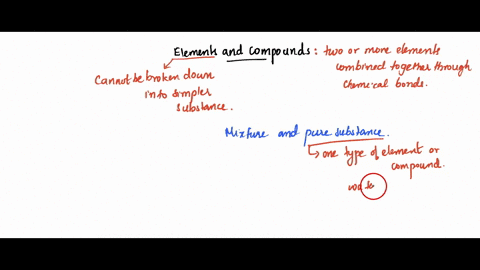 Elements and Compounds : two or more elements
combined together through
chemical bonds.
Cannot be broken down
into simpler
substance.
Mixture and pure substance.
one type of element or
compound.